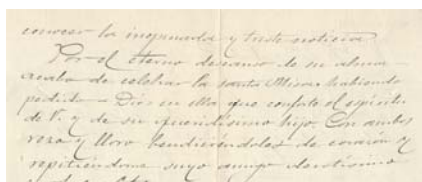 conocer la inesperada y triste noticia
Por el eterno descanso de su alma
acabo de celebrar la santa Misa habiendo
pedido a Dios en ella que conforte el espíritu
de V. y de su queridísimo hijo. Con ambos
reza y lloro bendiciéndoles de corazón y
repitiéndome suyo amigo devotísimo